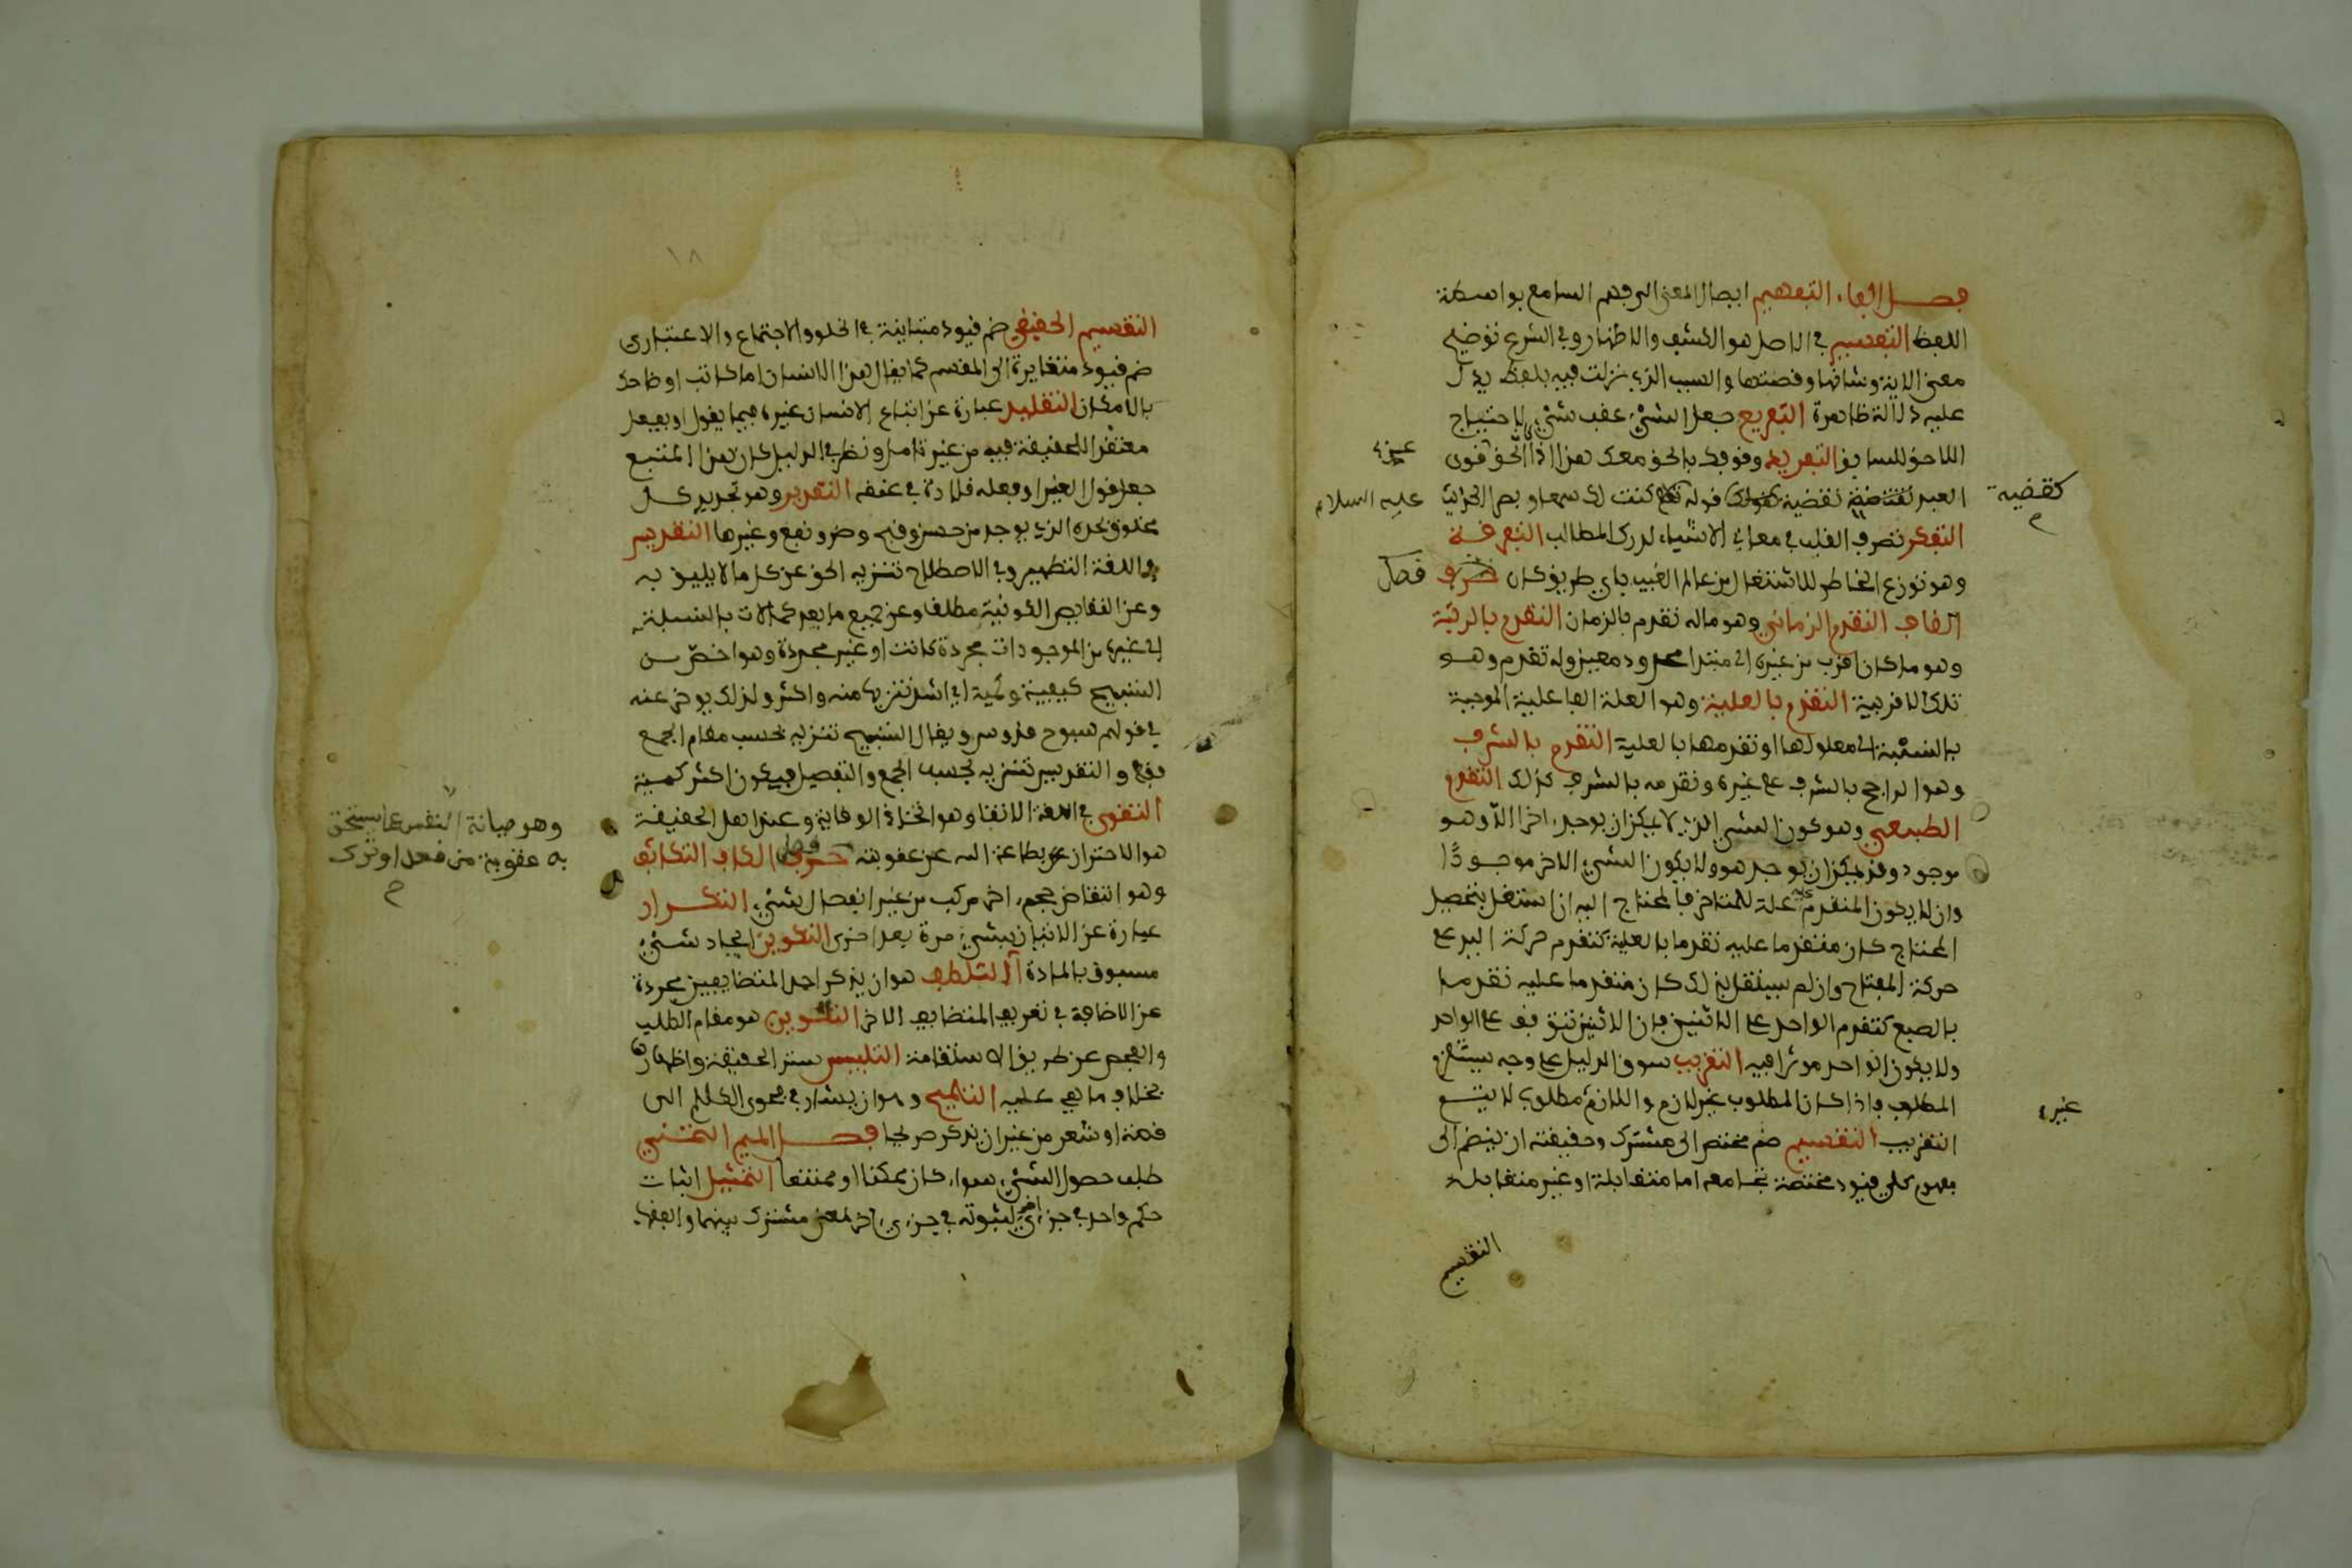 فصل الفاء التفهيم ايصال المعنى الى فهم السامع بواسطة
اللفظ التفسير في الاصل هو الكشف والاظهار وفي الشرع توضيح
معنى الاية وشانها وقصتها والسبب الذي نزلت فيه بلفظ يدل
عليه دلالة ظاهرة التفريع جعل الشيء عقب شيء لاحتياج
اللاحق للسابق التفريد وقوفك بالحق معك هذا اذا الحق قوى
العبد قوله كنت له سمعا وبصرا الحديث
التفكر تصرف القلب في معاني الاشياء لدرك المطالب التفرقة
وهو توزع الخاطر للاشتغال من عالم الغيب باي طريق كان حرف
القاف التقدم الزماني وهو ماله تقدم بالزمان التقدم بالرتبة
وهو ما كان اقرب من غيره الى مبتدا محدود معين وله تقدم وهو
تلك الاقربية التقدم بالعلية وهو العلة الفاعلية الموجبة
بالنسبة الى معلولها او تقدمها بالعلية التقدم بالشرف
وهو الراجح بالشرف على غيره وتقدمه بالشرف كذلك التقدم
الطبيعي وهو كون الشيء الذي لا يمكن ان يوجد اخر الا وهو
موجود وقد يمكن ان يوجد هو ولا يكون الشيء الاخر موجودا
وان لا يكون المتقدم علة للمتاخر فالمحتاج اليه ان استقل بتحصيل
المحتاج كان متقدما عليه تقدما بالعلية كتقدم حركة اليد على
حركة المفتاح وان لم يستقل بذلك كان متقدما عليه تقدما
بالطبع كتقدم الواحد على الاثنين فان الاثنين تتوقف على الواحد
ولا يكون الواحد موثرا فيه التقريب سوق الدليل على وجه يستلزم
المطلوب فاذا كان المطلوب غير لازم واللازم مطلوب لا يتم
التقريب التقسيم ضم مختص الى مشترك وحقيقته ان ينضم الى
مفهوم كلي قيود مختصة تجامعه اما متقابلة او غير متقابلة
التقسيم
كقضية
عليه السلام
فصل
غيره
١٨
التقسيم الحقيقي ضم قيود متباينة في الخلو والاجتماع والاعتباري
ضم قيود متغايرة الى المقسم كما يقال هذا الانسان اما كاتب او ضاحك
بالامكان التقليد عبارة عن اتباع الانسان غيره فيما يقول او يفعل
معتقدا للحقيقة فيه من غير تامل ونظر في الدليل كان هذا المتبع
جعل قول الغير او فعله قلادة في عنقه التقدير وهو تحديد كل
مخلوق بحده الذي يوجد من حسن وقبح وضر ونفع وغيرها التقديس
في اللغة التطهير وفي الاصطلاح تنزيه الحق عن كل ما لا يليق به
وعن النقايص الكونية مطلقا وعن جميع ما يعد كمالات بالنسبة
الى غيره من الموجودات مجردة كانت او غير مجردة وهو اخص من
التسبيح كيفية وكمية اي اشد تنزيها منه واكثر ولذلك يوخر عنه
في قولهم سبوح قدوس ويقال التسبيح تنزيه بحسب مقام الجمع
فقط والتقديس تنزيه بحسب الجمع والتفصيل فيكون اكثر كمية
التقوى في اللغة الاتقا وهو اتخاذ الوقاية وعند اهل الحقيقة
هو الاحتراز بطاعة الله عن عقوبته فصل حرف الكاف التكاثف
وهو انتقاص حجم اخر مركب من غير انفصال شيء التكرار
عبارة عن الاتيان بشيء مرة بعد اخرى التكوين ايجاد شيء
مسبوق بالمادة التلطف هو ان يذكر احد المتضايفين مجردة
عن الاضافة في تعريف المتضايف الاخر التلوين هو مقام الطلب
والفحص عن طريق الاستقامة التلبيس ستر الحقيقة واظهارها
بخلاف ما هي عليه التلميح وهو ان يشار في فحوى الكلام الى
قصة او شعر من غير ان يذكر صريحا فصل الميم التمني
طلب حصول الشيء سواء كان ممكنا او ممتنعا التمثيل اثبات
حكم واحد في جزءي لثبوته في جزءي اخر لمعنى مشترك بينهما والفقهاء
وهو صيانة النفس عما يستحق
به عقوبة من فعل او ترك